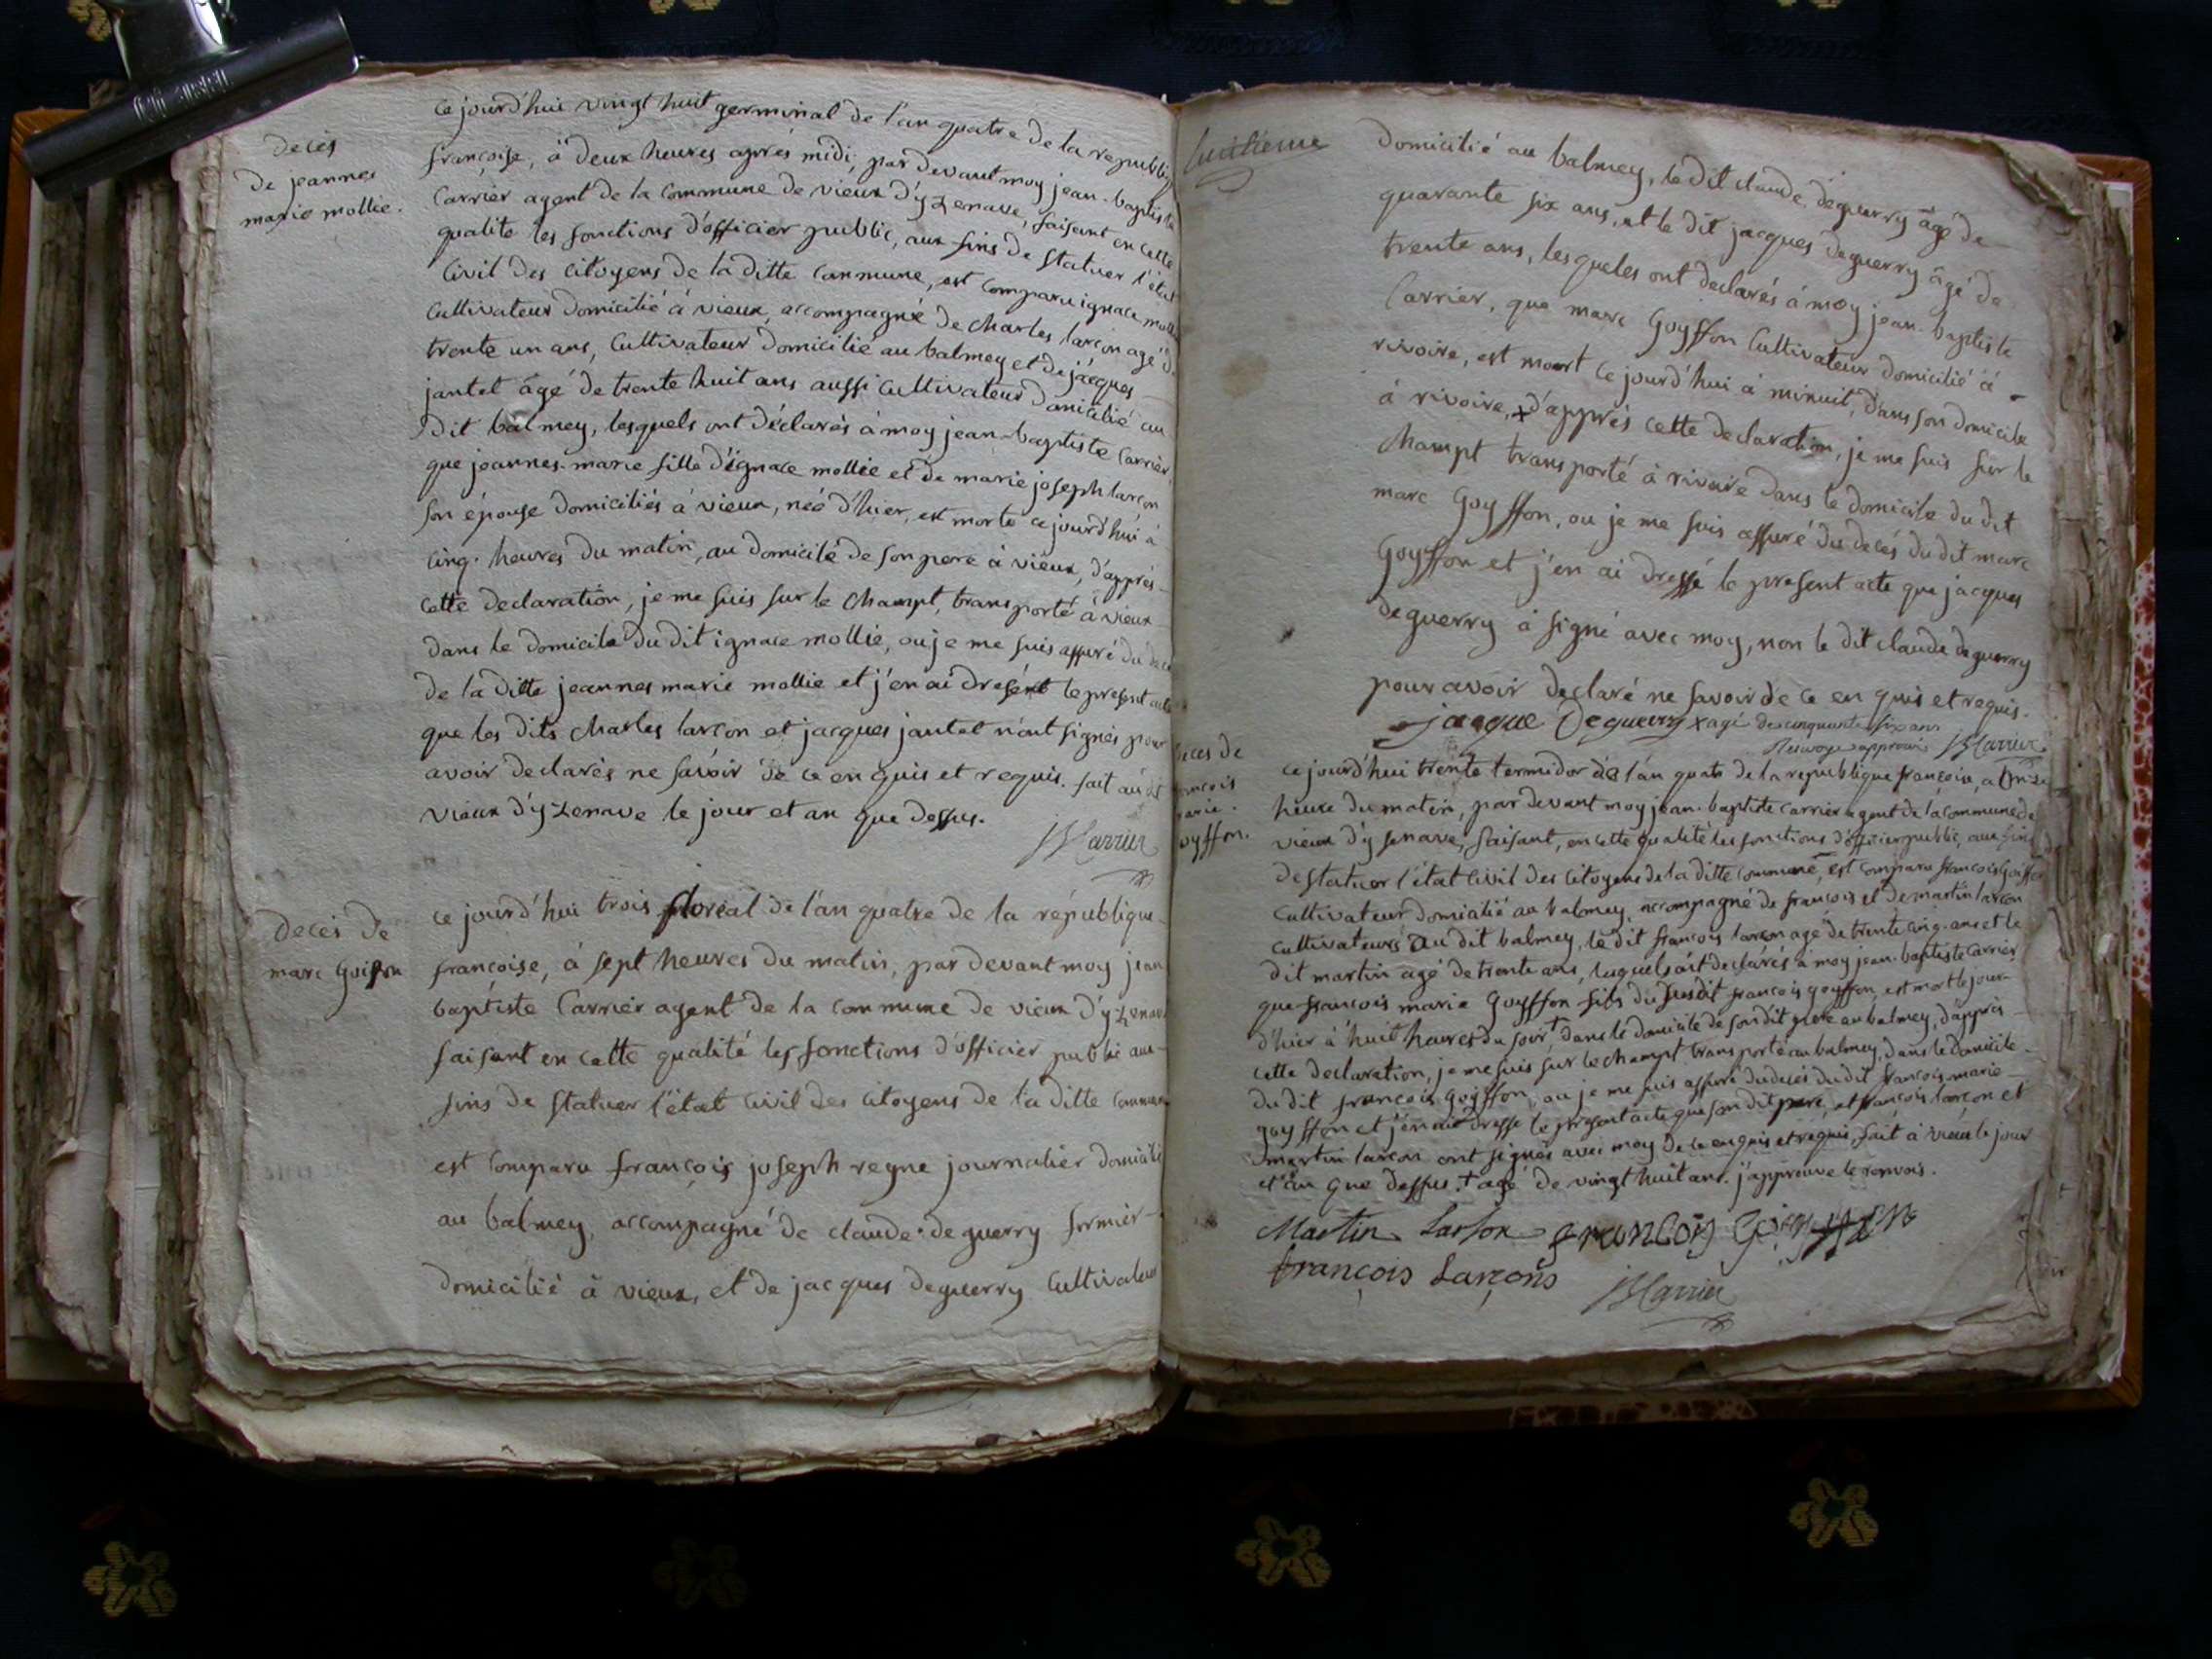 deces
de jeannes
marie mollie.
ce jourd'hui vingt huit germinal de l'an quatre de la republiq
françoise, à deux heures aprés midi, par devant moy jean-baptiste
Carrier agent de la commune de vieux d'yzenave, faisant en cette
qualité les fonctions d'officier public, aux fins de statuer l'état
Civil des citoyens de la ditte commune, est comparu ignace molli
Cultivateur domicilié à vieux, accompagné de charles larçon agé d
trente un ans, Cultivateur domicilié au balmey et de jacques
jantet âgé de trente huit ans aussi cultivateur domicilié au
dit balmey, lesquels ont déclarés à moy jean-baptiste Carrier
que jeannes-marie fille d'ignace mollie et de marie joseph larçon
son épouse domiciliés à vieux, née d'hier, est morte cejourd'hui à
cinq. heures du matin, au domicilé de son pere à vieux, d'apprés
cette declaration, je me suis sur le champt, transporté à vieux
dans le domicile du dit ignace mollie, ou je me suis assuré du décé
de la ditte jeannes marie mollie et j'en ai dresé le present acte
que les dits charles larcon et jacques jantet n'ont signés pour
avoir declarés ne savoir de ce en quis et requis. fait au dit
vieux d'yzenave le jour et an que dessus.
JBCarrier
deces de
marc Goiffon
ce jourd'hui trois floréal de l'an quatre de la république
françoise, à sept heures du matin, par devant moy jean
baptiste Carrier agent de la commune de vieux d'yzenav
faisant en cette qualité les fonctions d'officier public aux
fins de statuer l'état civil des citoyens de la ditte commun
est comparu françois joseph regne journalier domicilié
au balmey, accompagné de claude deguerry fermier
domicilié à vieux, et de jacques deguerry Cultivateur
huitieme
domicilié au balmey, le dit claude deguerry âgé de
quarante six ans, et le dit jacques deguerry âgé de
trente ans, lesqueles ont declarés à moy jean-baptiste
Carrier, que marc Goyffon Cultivateur domicilié à
rivoire, est mort ce jourd'hui à minuit, dans son domicile
à rivoire, x d'apprés cette declaration, je me suis sur le
champt transporté à rivoire dans le domicile du dit
marc Goyffon, ou je me suis assuré du decés du dit marc
Goyffon et j'en ai dressé le present acte que jacques
deguerry à signé avec moy, non le dit claude deguerry
pour avoir declaré ne savoir de ce en quis et requis.
jacque Deguerry x agé de cinquante six ans
Renvoye approuvé JBCarrier
deces de
françois
marie.
goyffon.
ce jourd'hui trente termidor de l'an quatr de la republique françoise, a onze
heure du matin, par devant moy jean-baptiste carrier agent de la commune de
vieux d'ysenave, faisant, en cette qualité les fonctions d'officier public, aux fins
de statuer l'état civil des citoyens de la ditte commune, est comparu françois goiffon
cultivateur domicilié au balmey, accompagné de françois et de martin larcon
cultivateurs au dit balmey, le dit françois larcon agé de trente cinq-ans et le
dit martin agé de trente ans, lesquels ont declarés à moy jean-baptiste Carrier
que françois marie Goyffon fils du susdit françois goyffon, est mort le jour
d'hier à huit heures du soir † dans le domicile de son dit pere au balmey, d'apprés
cette declaration, je me suis sur le champt transporté au balmey, dans le domicile
du dit françois goyffon, ou je me suis assuré du deces du dit françois marie
goyffon et j'en ai dresse le present acte que son dit pere, et françois larcon et
martin larcon ont signés avec moy de ce enquis et requis, fait à vieux le jour
et an que dessus. † agé de vingt huit ans. j'approuve le renvois.
Martin Larson françois Goiffon
françois Larçons
JBCarrier